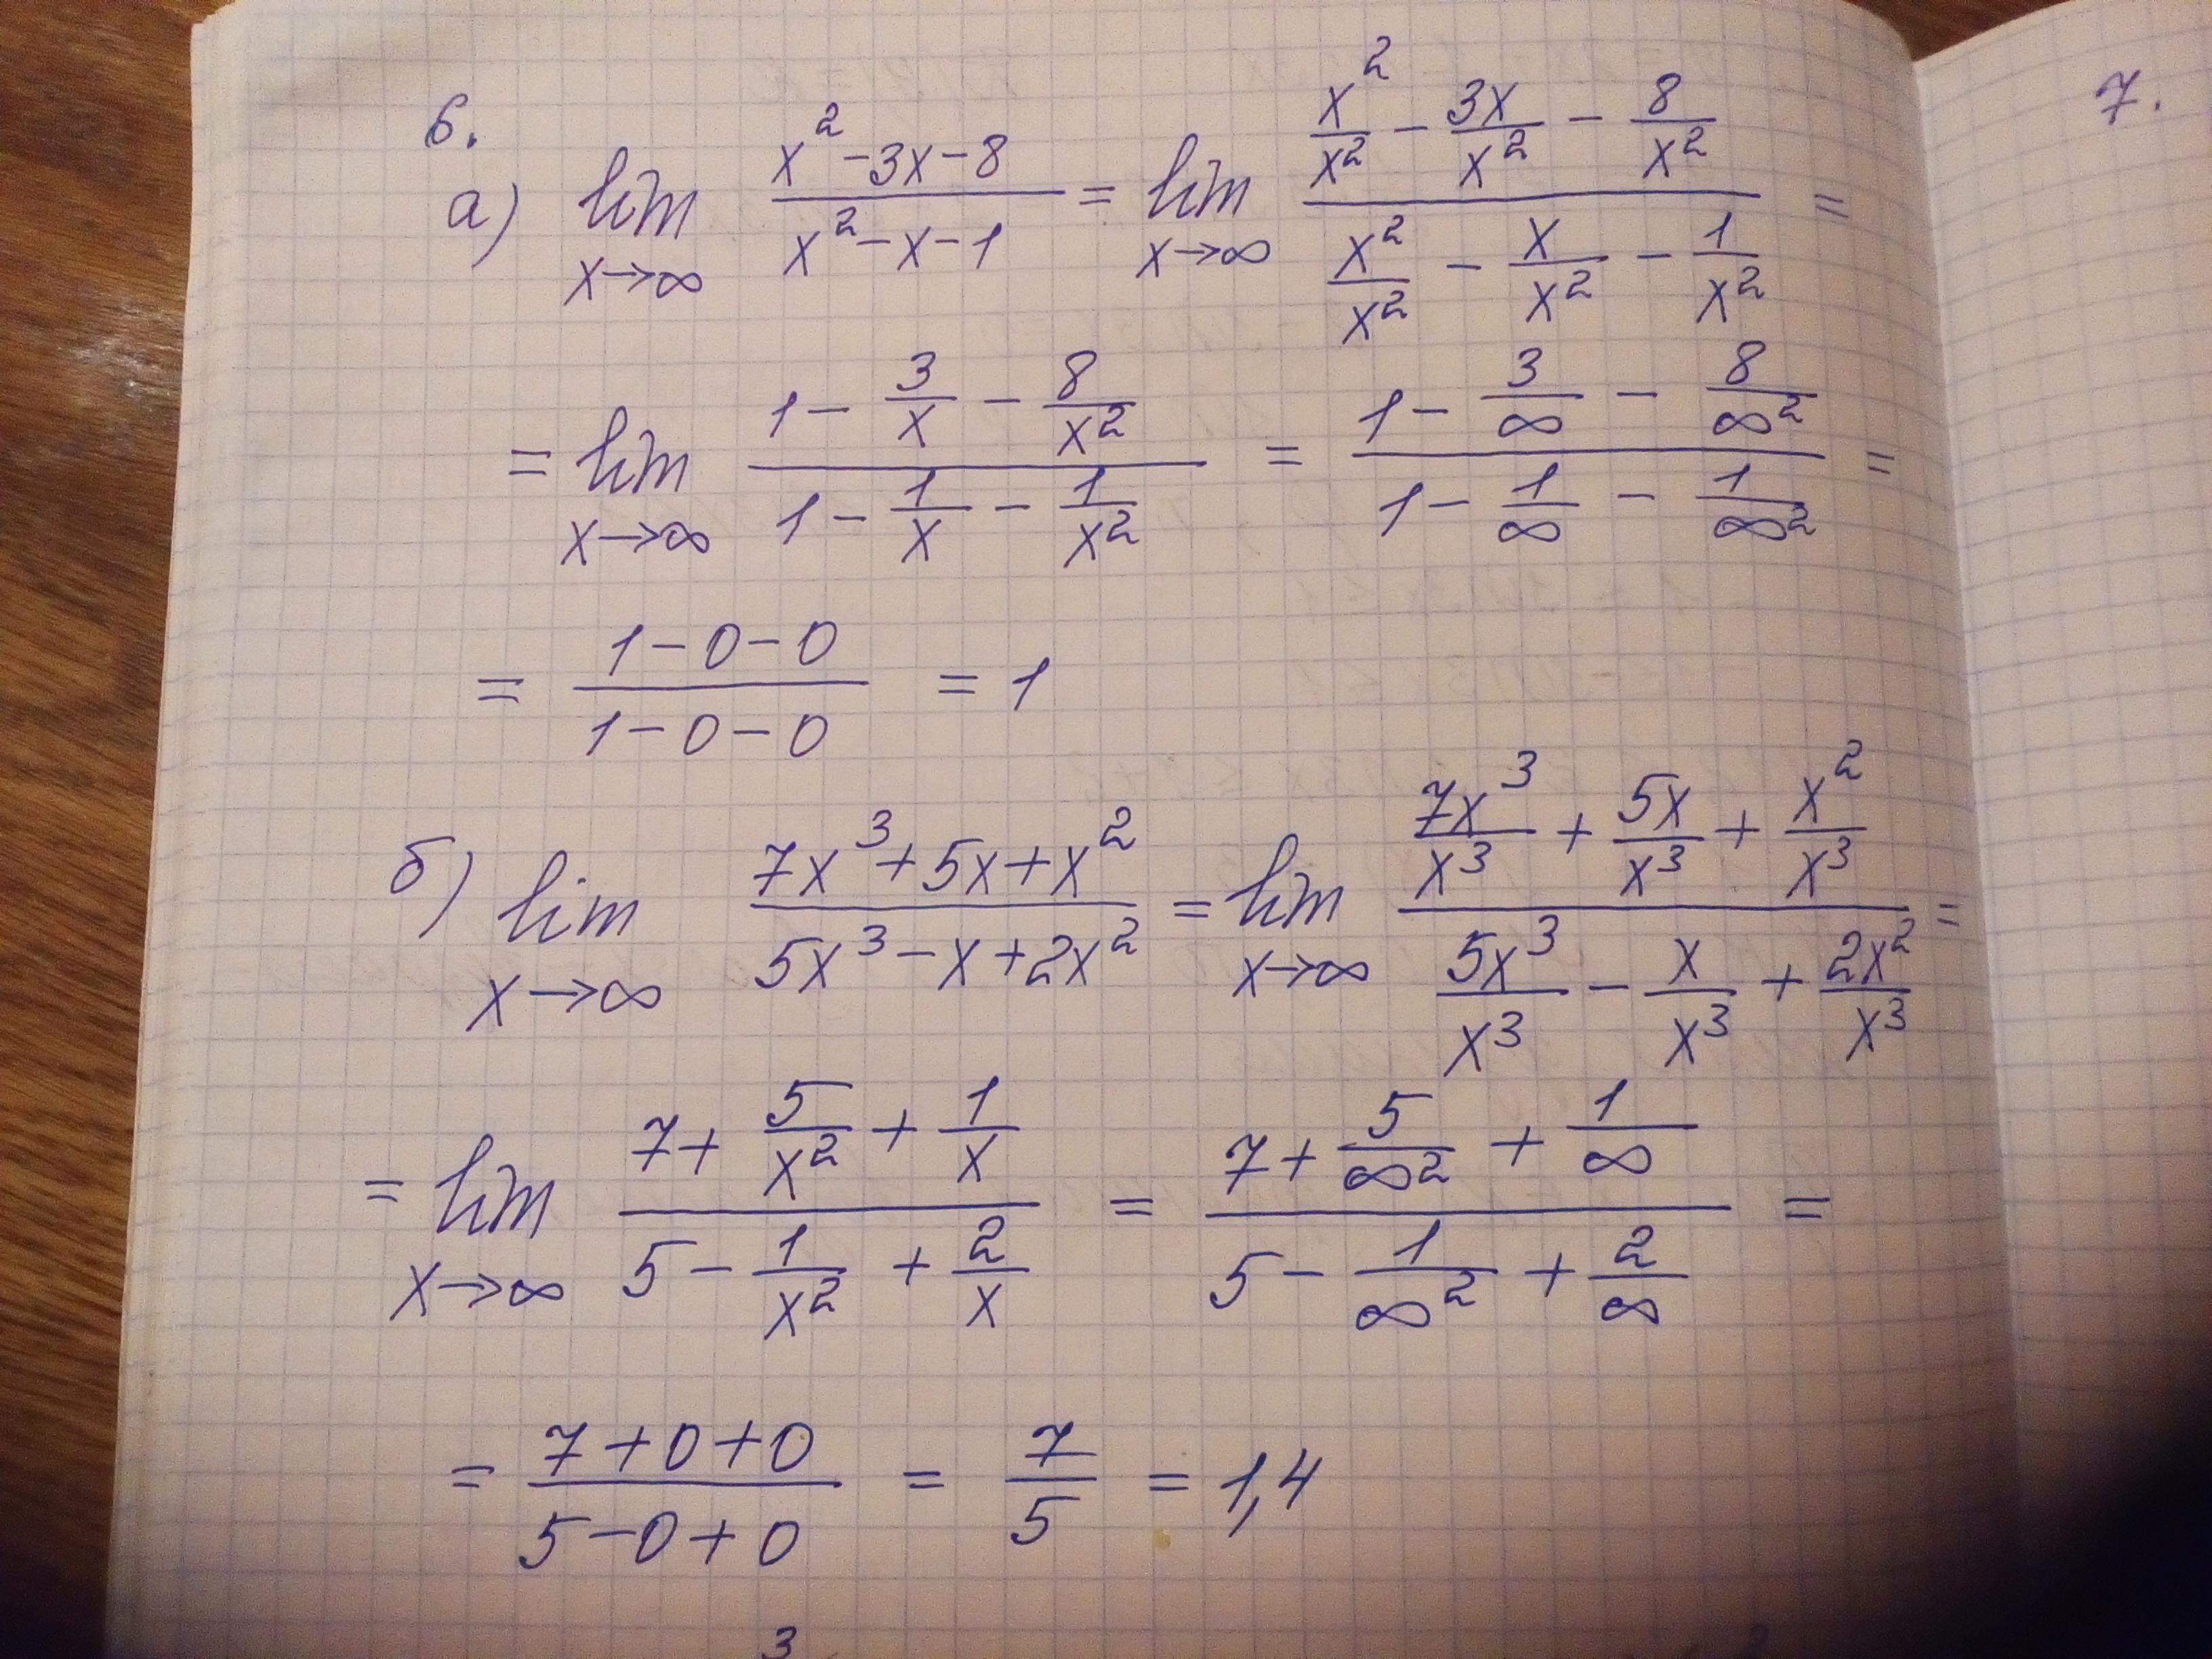 6.
а) lim x→∞ (x² - 3x - 8)/(x² - x - 1) = lim x→∞ (x²/x² - 3x/x² - 8/x²)/(x²/x² - x/x² - 1/x²) =
= lim x→∞ (1 - 3/x - 8/x²)/(1 - 1/x - 1/x²) = (1 - 3/∞ - 8/∞²)/(1 - 1/∞ - 1/∞²) =
= (1 - 0 - 0)/(1 - 0 - 0) = 1
б) lim x→∞ (7x³ + 5x + x²)/(5x³ - x + 2x²) = lim x→∞ (7x³/x³ + 5x/x³ + x²/x³)/(5x³/x³ - x/x³ + 2x²/x³) =
= lim x→∞ (7 + 5/x² + 1/x)/(5 - 1/x² + 2/x) = (7 + 5/∞² + 1/∞)/(5 - 1/∞² + 2/∞) =
= (7 + 0 + 0)/(5 - 0 + 0) = 7/5 = 1,4
3
7.